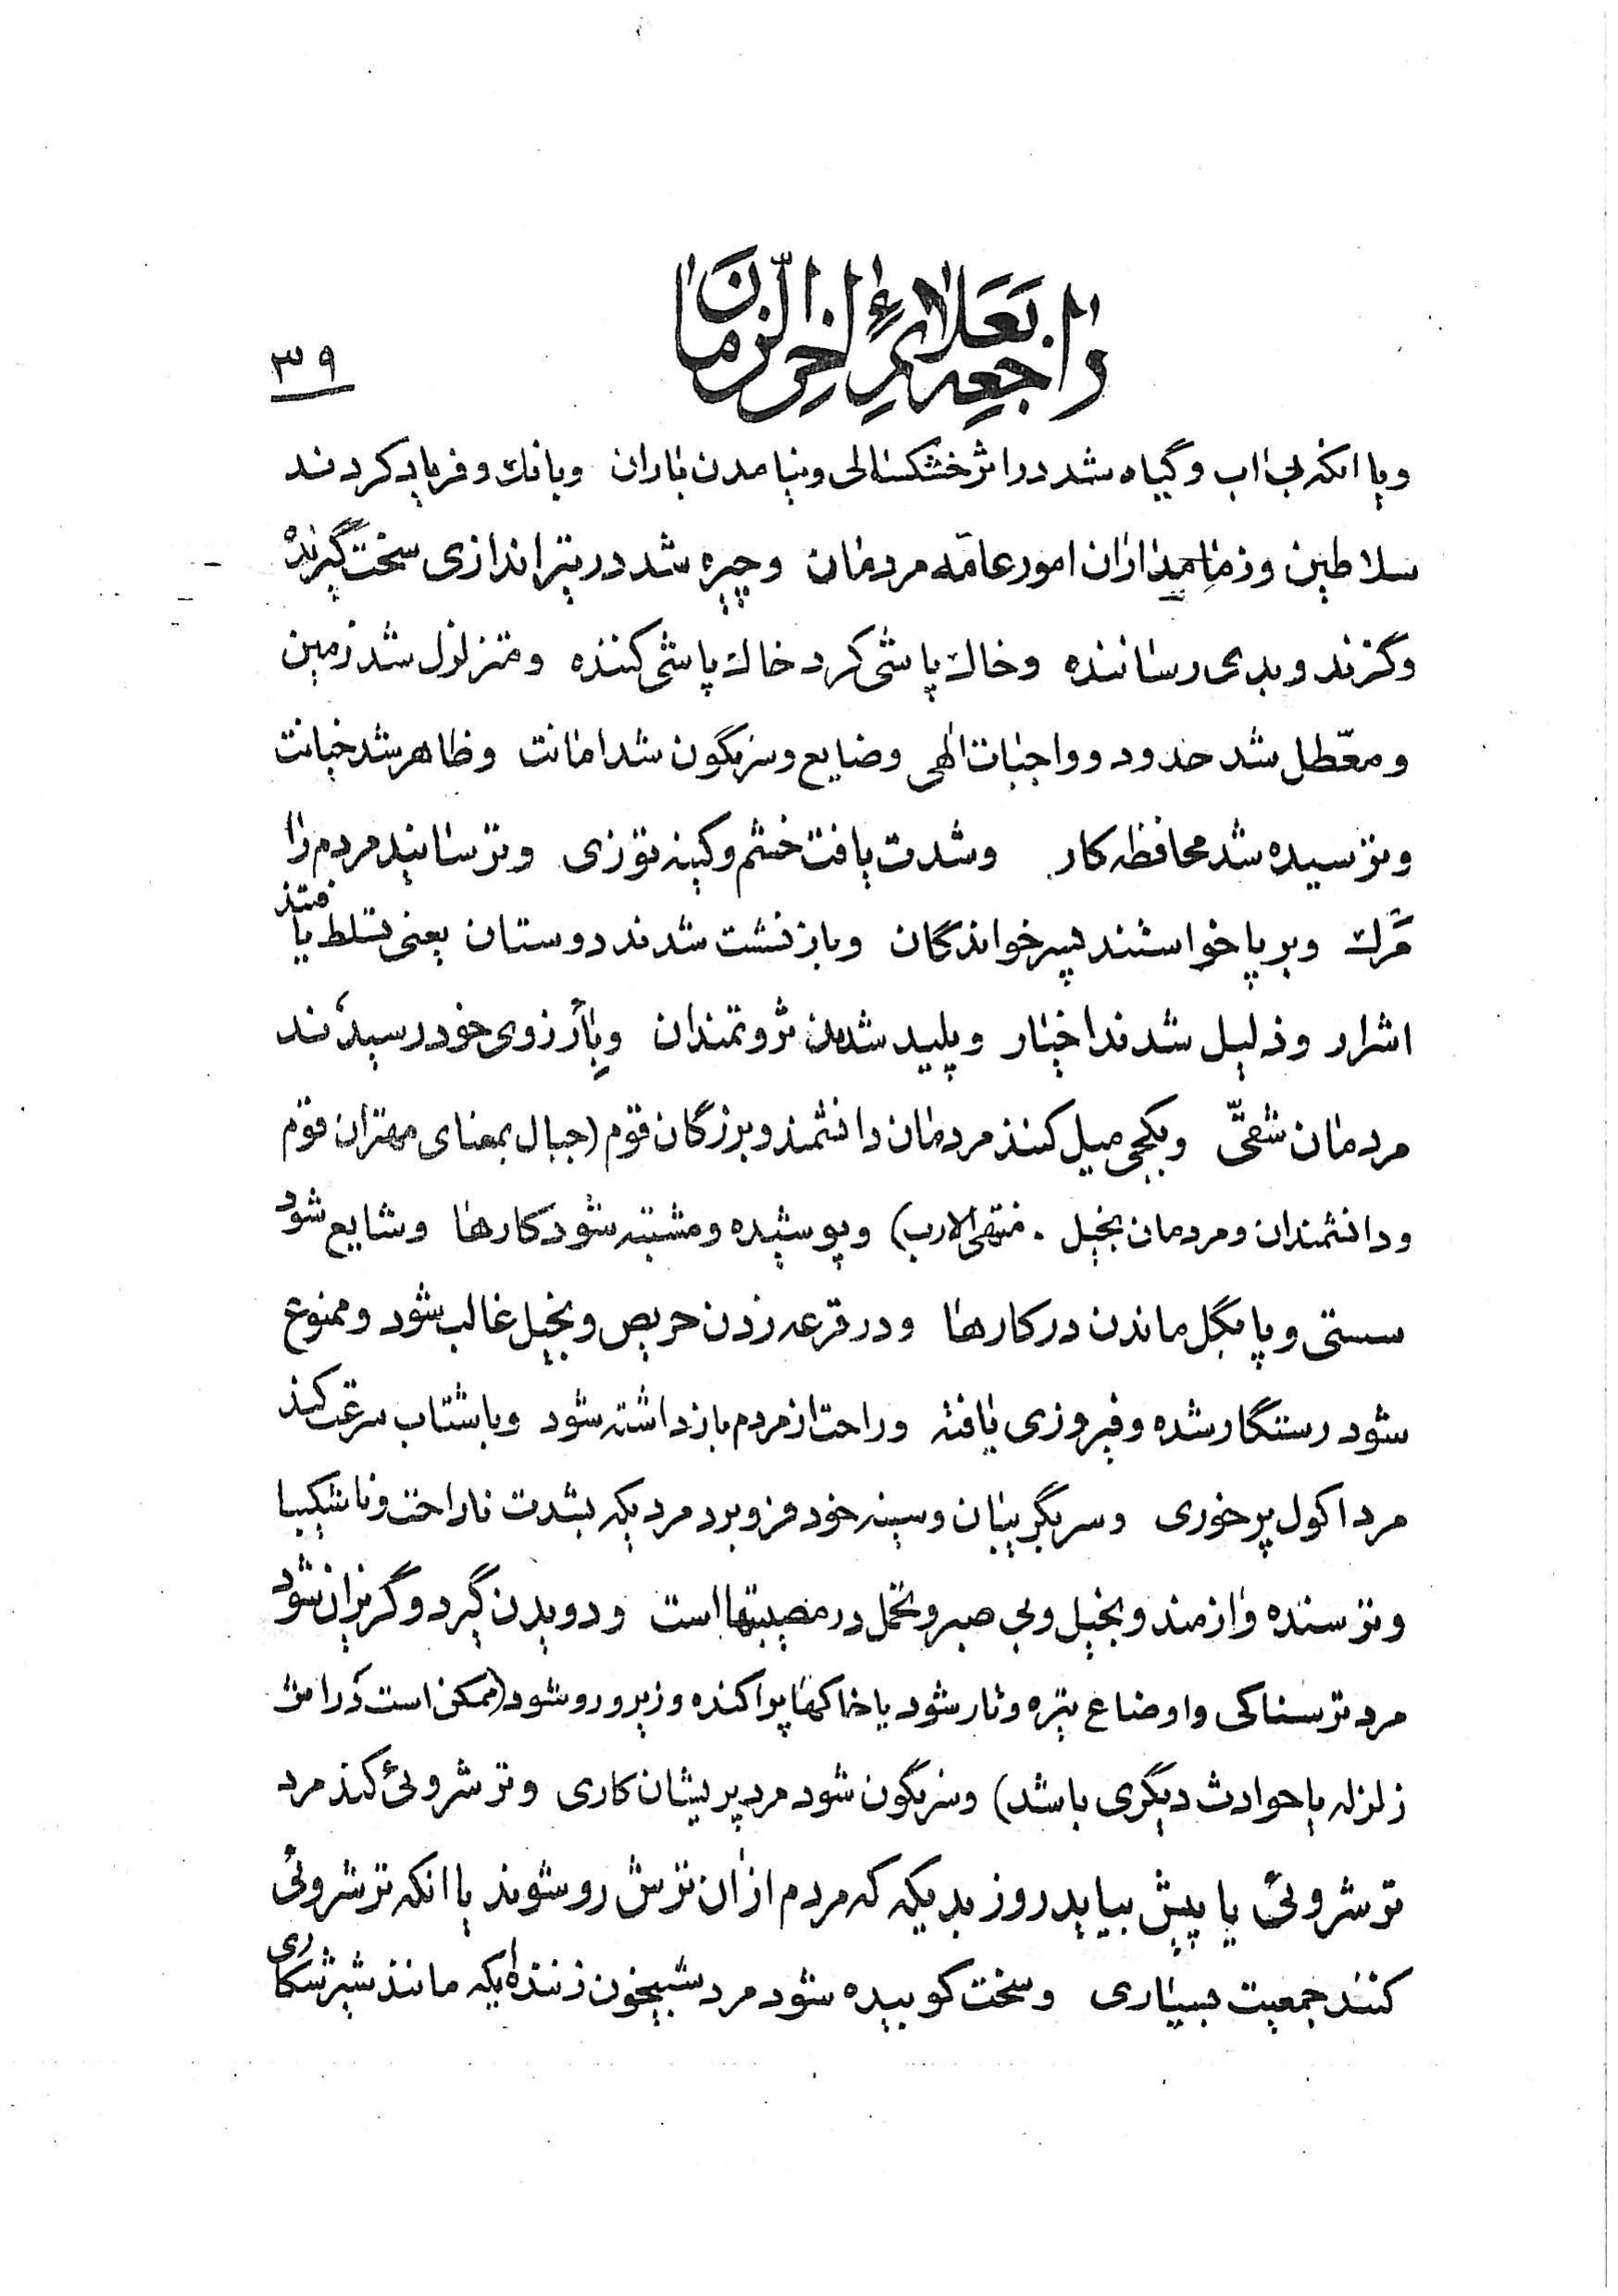 راجعه بعلائم اخر الزمان
۳۹
و یا انکه بی اب و گیاه شد در اثر خشکسالی و نیامدن باران و بانك و فریاد کردند
سلاطین و زمامداران امور عامّه مردمان و چیره شد در تیراندازی سخت گیرنده
و گزند و بدی رساننده و خاك پاشی کرد خاك پاشی کننده و متزلزل شد زمین
و معّطل شد حدود و واجبات الهی و ضایع و سرنگون شد امانت و ظاهر شد خیانت
و ترسیده شد محافظه کار و شدت یافت خشم و کینه توزی و ترسانید مردم را
مرك و بر پا خواستند پسر خواندگان و باز نشست شدند دوستان یعنی تسلط یافتند
اشرار و ذلیل شدند اخیار و پلید شدند ثروتمندان و بآرزوی خود رسیدند
مردمان شقیّ و بکجی میل کنند مردمان دانشمند و بزرگان قوم (جبال بمعنای مهتران قوم
و دانشمندان و مردمان بخیل . منتهی الارب) و پوسیده و مشتبه شود کارها و شایع شود
سستی و پا بگل ماندن در کارها و در قرعه زدن حریص و بخیل غالب شود و ممنوع
شود رستگار شده و فیروزی یافته و راحت از مردم باز داشته شود و با شتاب سرعت کند
مرد اکول پر خوری و سر بگریبان و سینه خود فرو برد مردیکه بشدت ناراحت و ناشکیبا
و ترسنده و ازمند و بخیل و بی صبر و تحمل در مصیبتها است و دویدن گیرد و گریزان شود
مرد ترسناکی و اوضاع تیره و تار شود یا خاکها پراکنده و زیر و رو شود (ممکن است در اثر
زلزله یا حوادث دیگری باشد) و سرنگون شود مرد پریشان کاری و ترشروئی کند مرد
ترشروئی یا پیش بیاید روز بدیکه که مردم از ان ترش رو شوند یا انکه ترشروئی
کنند جمعیت بسیاری و سخت کوبیده شود مرد شبیخون زننده ایکه مانند شیر شکاری